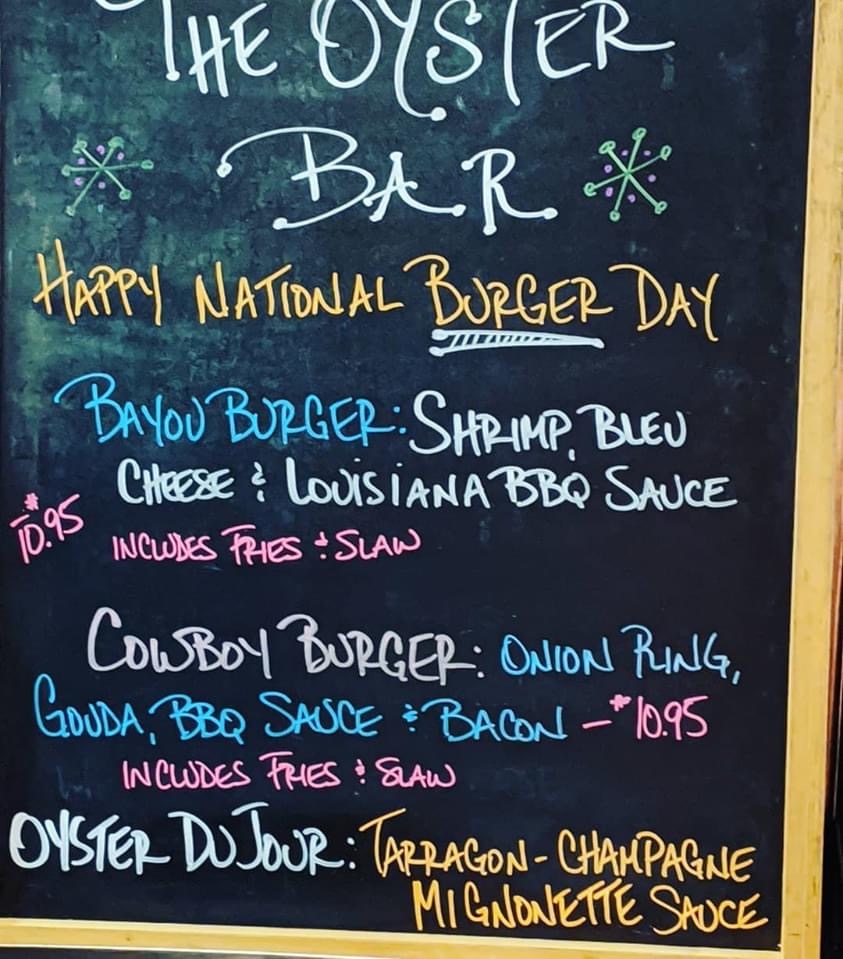 THE OYSTER
BAR
HAPPY NATIONAL BURGER DAY
BAYOU BURGER: SHRIMP, BLEU
CHEESE & LOUISIANA BBQ SAUCE
$10.95 INCLUDES FRIES & SLAW
COWBOY BURGER: ONION RING,
GOUDA, BBQ SAUCE & BACON - $10.95
INCLUDES FRIES & SLAW
OYSTER DU JOUR: TARRAGON-CHAMPAGNE
MIGNONETTE SAUCE